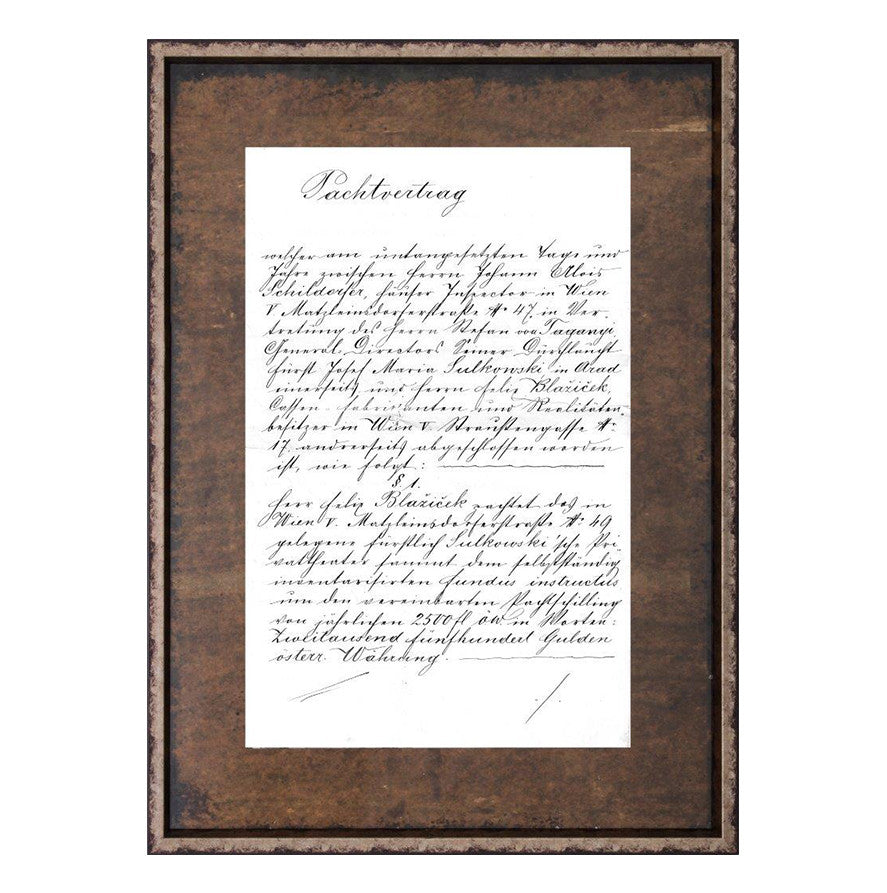 Pachtvertrag
welcher am untangesetzten Tage und
Jahre zwischen Herrn Johann Alois
Schildorfer, Häuser Inspector in Wien
V Matzleinsdorferstraße No 47. in Ver-
tretung des Herrn Stefan von Taganyi
General-Directors Seiner Durchlaucht
Fürst Josef Maria Sulkowski in Arad
einerseits und Herrn Felix Blažiček,
Cassen-Fabrikanten und Realitäten-
besitzer in Wien V. Straußengasse No
17. andrerseits abgeschlossen worden
ist, wie folgt:
§ 1.
Herr Felix Blažiček pachtet das in
Wien V. Matzleinsdorferstraße No 49
gelegene fürstlich Sulkowski'sche Pri-
vattheater sammt dem selbstständig
inventarisirten fundus instructus
um den vereinbarten Pachtschilling
von jährlichen 2500 fl öW in Worten:
Zweitausend fünfhundert Gulden
österr. Währung.
./.